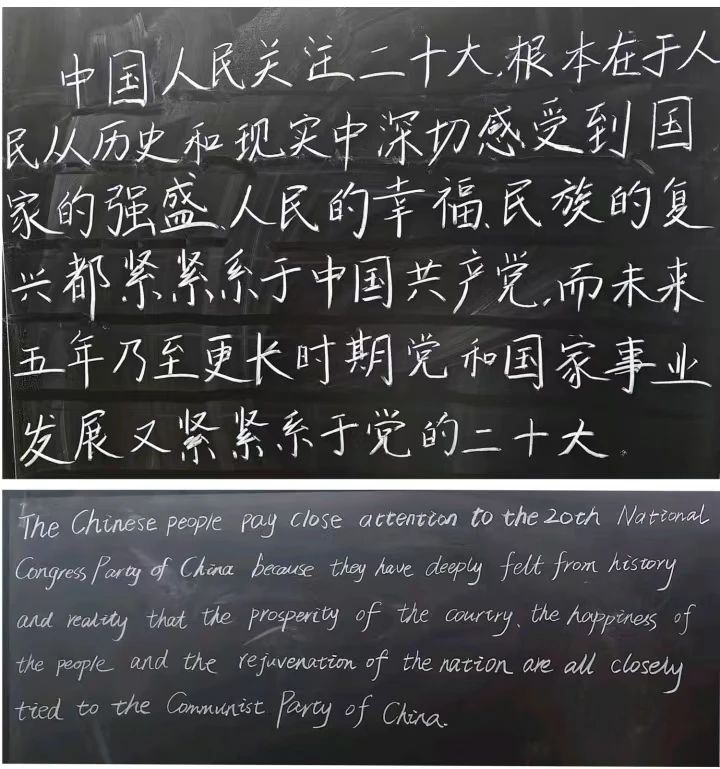 中国人民关注二十大,根本在于人
民从历史和现实中深切感受到国
家的强盛、人民的幸福、民族的复
兴都紧紧系于中国共产党,而未来
五年乃至更长时期党和国家事业
发展又紧紧系于党的二十大.
The Chinese people pay close attention to the 20th National
Congress Party of China because they have deeply felt from history
and reality that the prosperity of the courtry, the happiness of
the people and the rejuvenation of the nation are all closely
tied to the Communist Party of China.